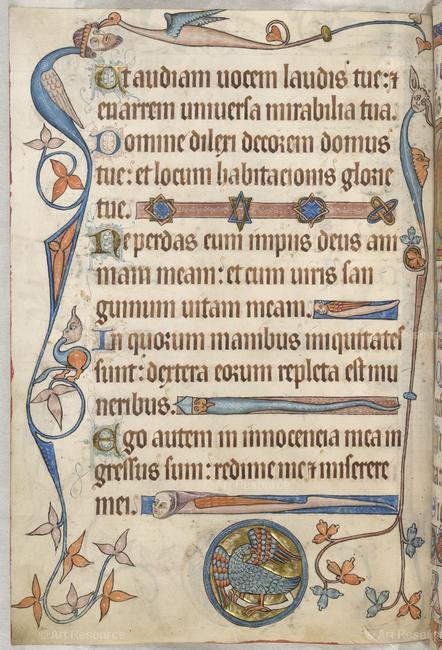 Ut audiam uocem laudis tue: ⁊
enarrem uniuersa mirabilia tua.
Domine dilexi decorem domus
tue: et locum habitacionis glorie
tue.
Ne perdas cum impiis deus ani
mam meam: et cum uiris san
guinum uitam meam.
In quorum manibus iniquitates
sunt: dextera eorum repleta est mu
neribus.
Ego autem in innocencia mea in
gressus sum: redime me ⁊ miserere
mei.
© Art Resource
© Art Resource